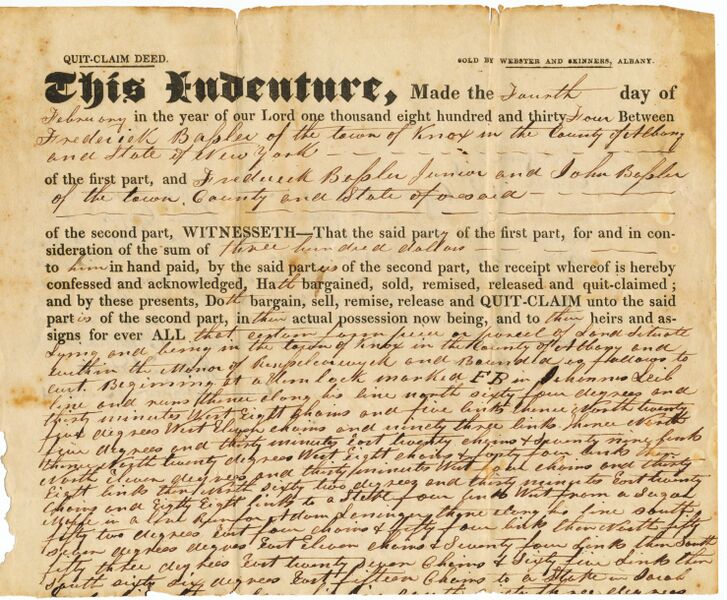 QUIT-CLAIM DEED.
SOLD BY WEBSTER AND SKINNERS, ALBANY.
This Indenture, Made the Fourth day of
February in the year of our Lord one thousand eight hundred and thirty Four Between
Frederick Baſsler of the town of Knox in the County of Albany
and State of New York
of the first part, and Frederick Baſsler Junior and John Baſsler
of the town County and State aforesaid
of the second part, WITNESSETH—That the said party of the first part, for and in con-
sideration of the sum of three hundred dollars
to him in hand paid, by the said parties of the second part, the receipt whereof is hereby
confessed and acknowledged, Hath bargained, sold, remised, released and quit-claimed;
and by these presents, Doth bargain, sell, remise, release and QUIT-CLAIM unto the said
parties of the second part, in their actual possession now being, and to their heirs and as-
signs for ever ALL that certain farm piece or parcel of Land situate
Lying and being in the town of Knox in the County of Albany and
within the Manor of and Bounded as follows to
wit. Beginning at a Hemlock marked F B in Johannes Leib
line and runs thence along his line north sixty four degrees and
thirty minutes West Eight Chains and five links thence North twenty
four degrees West Eleven chains and ninety three links thence North
five degrees and thirty minutes East twenty chains & Seventy nine links
thence North twenty degrees West Eight chains & forty four links
North eleven degrees and thirty minutes West four chains and thirty
Eight links then North Sixty two degrees and thirty minutes East twenty
Chains and Eighty Eight links to a Stake four links West from a Sugar
Maple in a line Adam thence along his line south
fifty two degrees East four chains & fifty four links then North fifty
Seven degrees degrees East Eleven chains & Seventy four Links then South
fifty three degrees East twenty Seven Chains & Sixty five Links then
South sixty six degrees East fifteen Chains to a Stake in Jacob
degrees